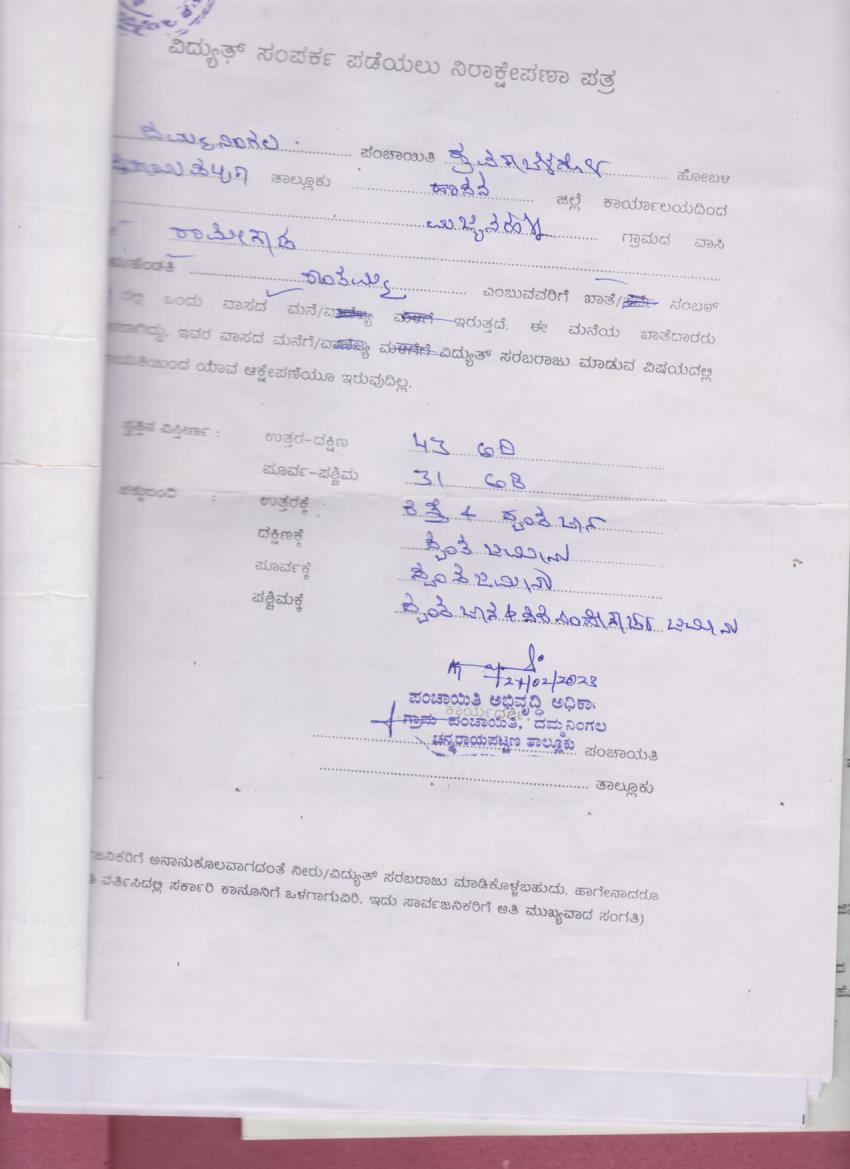 ವಿದ್ಯುತ್ ಸಂಪರ್ಕ ಪಡೆಯಲು ನಿರಾಕ್ಷೇಪಣಾ ಪತ್ರ
ದಮ್ಮನಿಂಗಲ ಪಂಚಾಯಿತಿ ಶ್ರವಣಬೆಳಗೊಳ ಹೋಬಳಿ
ತಾಲ್ಲೂಕು ಹಾಸನ ಜಿಲ್ಲೆ ಕಾರ್ಯಾಲಯದಿಂದ
ಗ್ರಾಮದ ವಾಸಿ
ರಾಮೇಗೌಡ
ಎಂಬುವವರಿಗೆ ಖಾತೆ/ ನಂಬರ್
ಒಂದು ವಾಸದ ಮನೆ/ವಾಣಿಜ್ಯ ಮಳಿಗೆ ಇರುತ್ತದೆ. ಈ ಮನೆಯ ಖಾತೆದಾರರು
ಇವರ ವಾಸದ ಮನೆಗೆ/ವಾಣಿಜ್ಯ ಮಳಿಗೆಗೆ ವಿದ್ಯುತ್ ಸರಬರಾಜು ಮಾಡುವ ವಿಷಯದಲ್ಲಿ
ಯಾವ ಆಕ್ಷೇಪಣೆಯೂ ಇರುವುದಿಲ್ಲ.
ಸ್ವತ್ತಿನ ವಿಸ್ತೀರ್ಣ : ಉತ್ತರ-ದಕ್ಷಿಣ 43 ಅಡಿ
ಪೂರ್ವ-ಪಶ್ಚಿಮ 31 ಅಡಿ
ಚೆಕ್ಕುಬಂದಿ : ಉತ್ತರಕ್ಕೆ ರಸ್ತೆ & ಸ್ವಂತ ಜಾಗ
ದಕ್ಷಿಣಕ್ಕೆ ಸ್ವಂತ ಜಮೀನು
ಪೂರ್ವಕ್ಕೆ ಸ್ವಂತ ಜಮೀನು
ಪಶ್ಚಿಮಕ್ಕೆ ಸ್ವಂತ ಜಾಗ & ಜಮೀನು
27/02/2023
ಪಂಚಾಯಿತಿ ಅಭಿವೃದ್ಧಿ ಅಧಿಕಾರಿ
ಕಾರ್ಯದರ್ಶಿ
ಗ್ರಾಮ ಪಂಚಾಯಿತಿ, ದಮ್ಮನಿಂಗಲ
ಚನ್ನರಾಯಪಟ್ಟಣ ತಾಲ್ಲೂಕು ಪಂಚಾಯತಿ
ತಾಲ್ಲೂಕು
ಜನಿಕರಿಗೆ ಅನಾನುಕೂಲವಾಗದಂತೆ ನೀರು/ವಿದ್ಯುತ್ ಸರಬರಾಜು ಮಾಡಿಕೊಳ್ಳಬಹುದು. ಹಾಗೇನಾದರೂ
ವರ್ತಿಸಿದಲ್ಲಿ ಸರ್ಕಾರಿ ಕಾನೂನಿಗೆ ಒಳಗಾಗುವಿರಿ. ಇದು ಸಾರ್ವಜನಿಕರಿಗೆ ಅತಿ ಮುಖ್ಯವಾದ ಸಂಗತಿ)